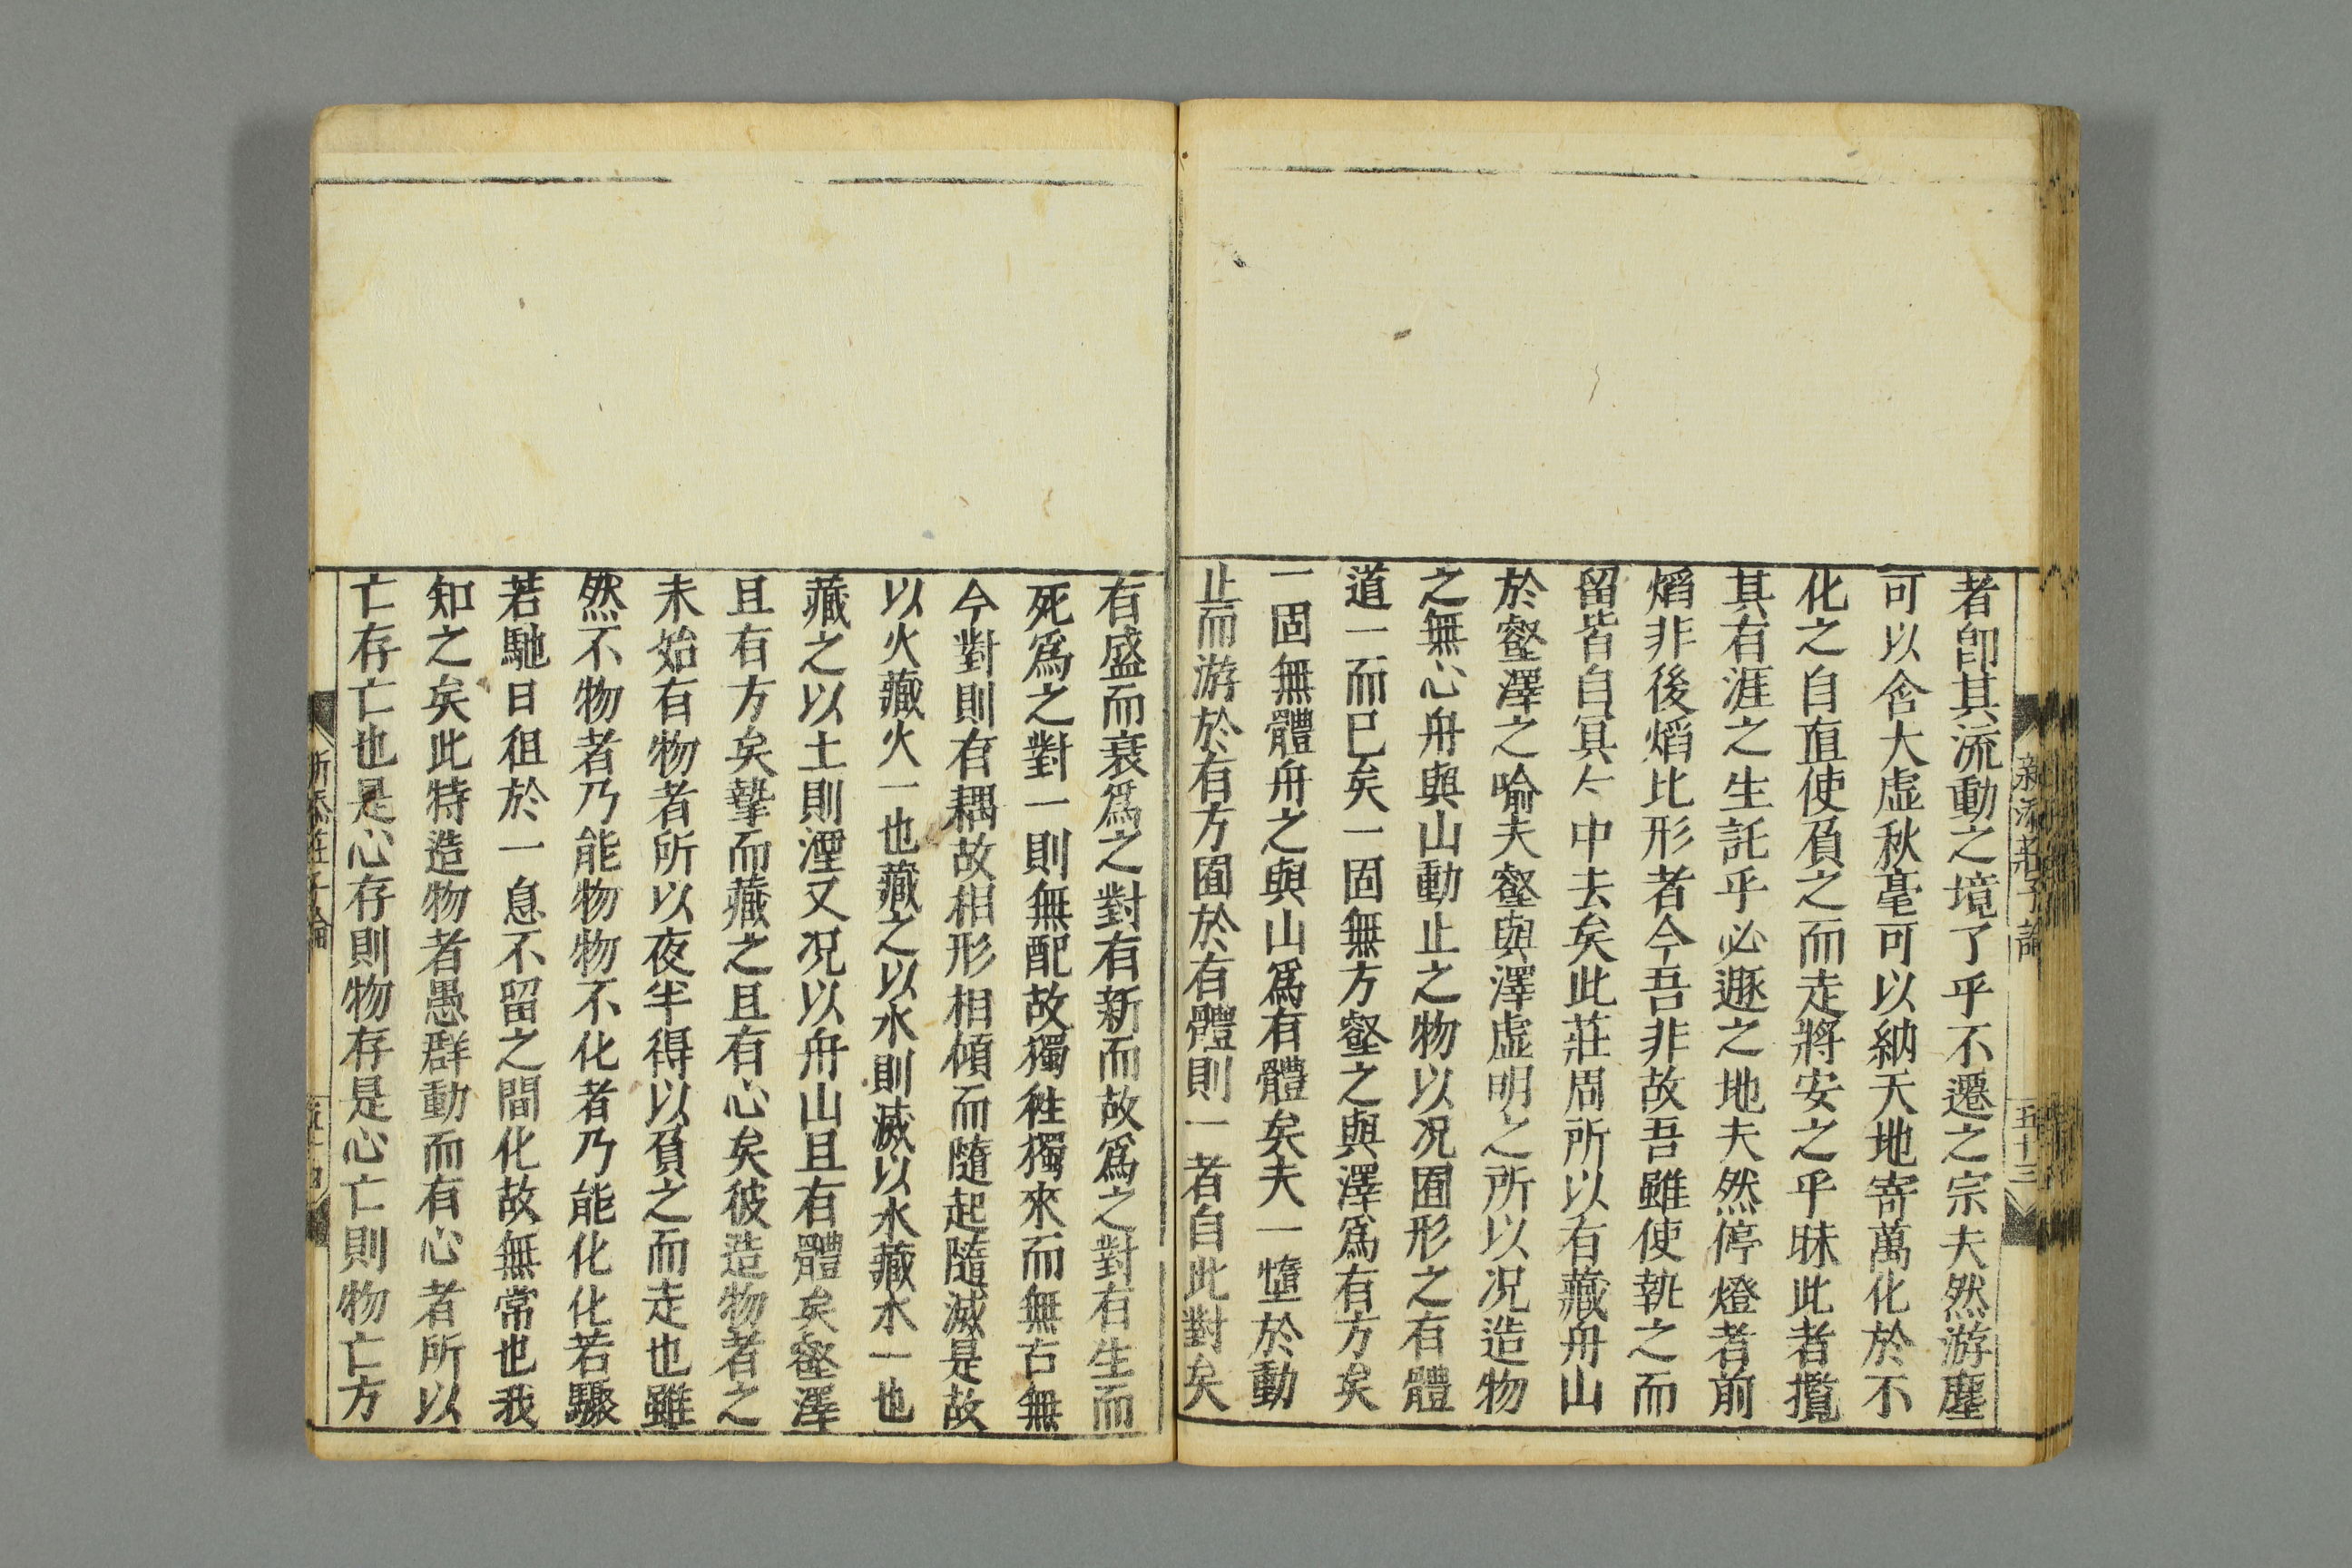 新添莊子論
五十三
者卽其流動之境了乎不遷之宗夫然游塵
可以含大虛秋毫可以納天地寄萬化於不
化之自直使負之而走將安之乎昧此者攬
其有涯之生託乎必遯之地夫然停燈者前
熖非後熖比形者今吾非故吾雖使執之而
留皆自冥冥中去矣此莊周所以有藏舟山
於壑澤之喻夫壑與澤虛明之所以况造物
之無心舟與山動止之物以况囿形之有體
道一而已矣一固無方壑之與澤爲有方矣
一固無體舟之與山爲有體矣夫一墮於動
止而游於有方囿於有體則一者自此對矣
有盛而衰爲之對有新而故爲之對有生而
死爲之對一則無配故獨徃獨來而無古無
今對則有耦故相形相傾而隨起隨滅是故
以火藏火一也藏之以水則滅以水藏水一也
藏之以土則湮又况以舟山且有體矣壑澤
且有方矣挈而藏之且有心矣彼造物者之
未始有物者所以夜半得以負之而走也雖
然不物者乃能物物不化者乃能化化若驟
若馳日徂於一息不留之間化故無常也我
知之矣此特造物者愚群動而有心者所以
亡存亡也是心存則物存是心亡則物亡方
新添莊子論
五十四